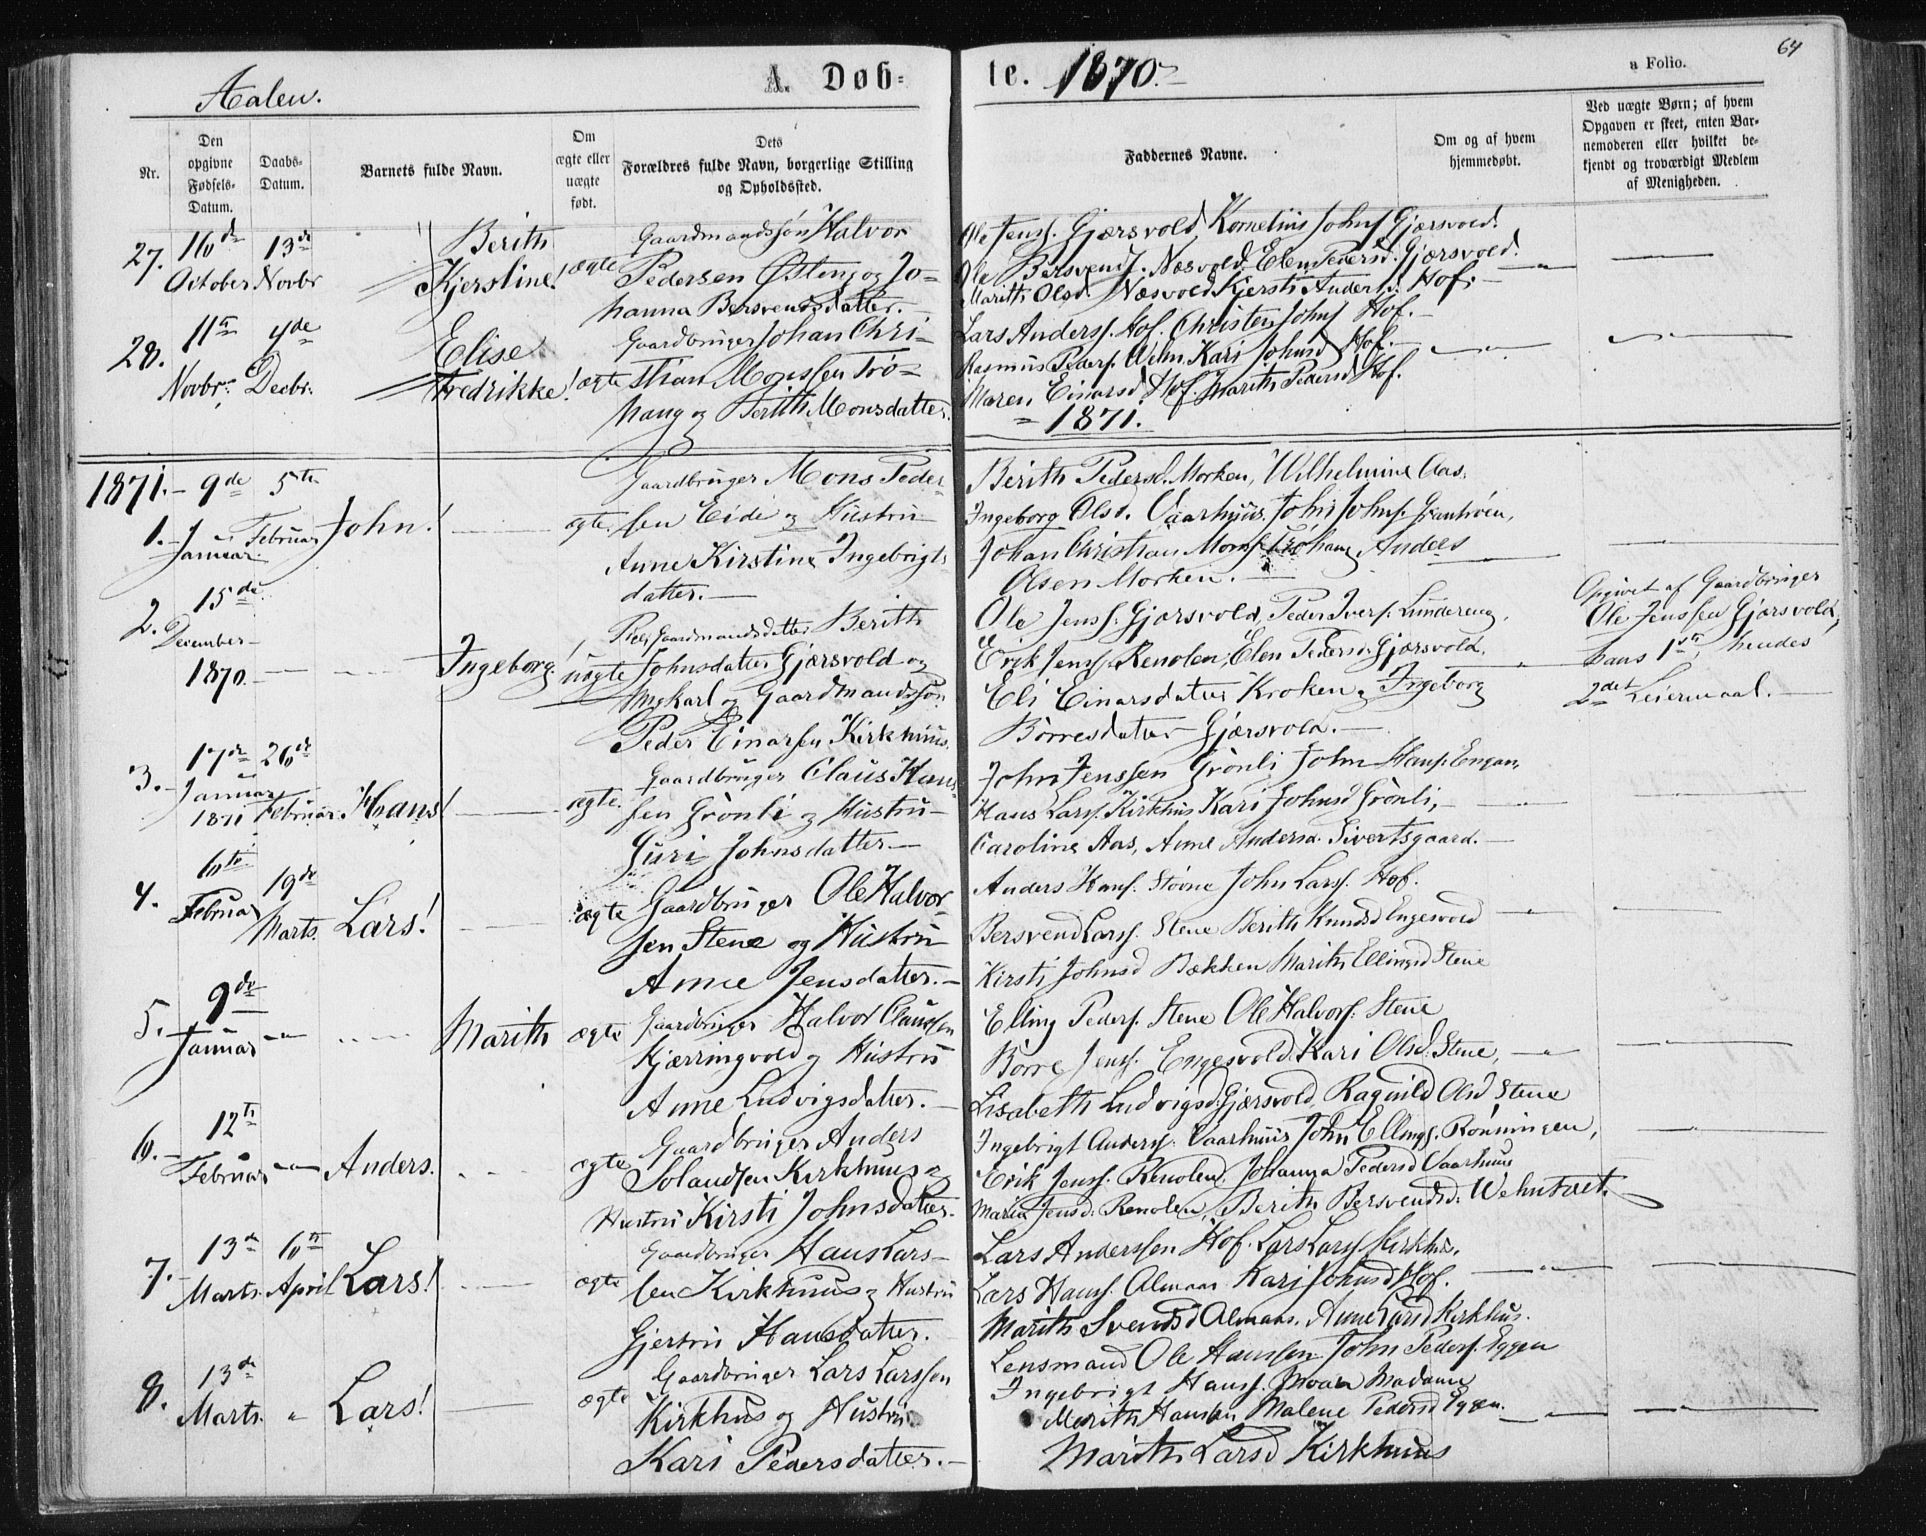 64
a Folio.
Aalen.
A. Døb-
te. 1870.
Nr.
Den opgivne Fødsels-Datum.
Daabs-Datum.
Barnets fulde Navn.
Om ægte eller uægte født.
Dets Forældres fulde Navn, borgerlige Stilling og Opholdssted.
Faddernes Navne.
Om og af hvem hjemmedøbt.
Ved uægte Børn; af hvem Opgaven er skeet, enten Barnemoderen eller hvilket bekjendt og troværdigt Medlem af Menigheden.
27. 16de October 13de Novbr
Berith Kjerstine! ægte
Gaardmandssøn Halvor
Pedersen Østeng og Jo-
hanna Bersvendsdatter.
Ole Jenss. Gjærsvold, Kornelius Johns. Gjærsvold.
Ole Bersvends. Næsvold, Elen Pedersd. Gjærsvold.
Marith Olsd. Næsvold Kjersti Andersd. Hof.
28. 11te Novbr. 4de Decbr.
Elise Fredrikke! ægte
Gaardbruger Johan Chri-
stian Monssen Trø-
haug og Berith Monsdatter.
Lars Anderss. Hof. Christen Johns. Hof.
Rasmus Peders. Wehn Kari Johnsd. Hof.
Maren Einarsd. Hof. Marith Pedersd. Hof.
1871.
1871.
1. 9de Januar. 5te Februar John! ægte.
Gaardbruger Mons Peder-
sen Eide og Hustru
Anne Kirstine Ingebrigts-
datter.
Berith Pedersd. Morken, Wilhelmine Aas.
Ingeborg Olsd. Vaarhuus, John Johns.
Johan Christian Monss. Trøhaug Anders
Olsen Morken.
2. 15de December 1870. Ingeborg! uægte
Pige, Gaardmandsdatter Berith
Johnsdatter Gjærsvold og
Ungkarl og Gaardmandssøn
Peder Einarsen Kirkhuus.
Ole Jenss. Gjærsvold, Peder Ivers. Lundereng,
Erik Jenss. Renolen, Elen Pedersd. Gjærsvold.
Eli Einarsdatter Kroken, Ingeborg
Børresdatter Gjærsvold.
Opgivet af Gaardbruger
Ole Jenssen Gjærsvold,
hans 1ste, hendes
2det Leiermaal.
3. 17de Januar 1871 26de Februar. Hans! ægte.
Gaardbruger Claus Han-
sen Grönli og Hustru
Guri Johnsdatter
John Jenssen Grönli John Hans. Engan,
Hans Larss. Kirkhus Kari Johnsd Grönli,
Caroline Aas, Anne Andersd. Sivertsgaard.
4. 6te Februar 19de Marts. Lars! ægte
Gaardbruger Ole Halvor-
sen Stene og Hustru
Anne Jensdatter.
Anders Hans. Støvne John Larss. Hof.
Bersvend Larss. Stene Berith Knudsd Engesvold
Kirsti Johnsd Bækken Marith Ellingsd Stene
5. 9de Januar Marith ægte
Gaardbruger Halvor Claussen
Kjærringvold og Hustru
Anne Ludvigsdatter.
Elling Peders. Stene Ole Halvors. Stene
Börre Jenss. Engesvold. Kari Olsd. Stene,
Lisabeth Ludvigsd. Gjærsvold Ragnild Olsd Stene
6. 12te Februar Anders. ægte
Gaardbruger Anders
Kirkhuus og
Hustru Kirsti Johnsdatter.
Ingebrigt Anderss. Vaarhuus John Ellings. Rönningen,
Erik Jenss. Renolen. Johanna Pedersd Vaarhuus
Maria Jensd. Renolen, Berith Bersvendsd. Wehntrøet.
7. 13de Marts. 6te April Lars! ægte
Gaardbruger Hans Lars-
sen Kirkhuus og Hustru
Gjertru Hansdatter.
Lars Anderssen Hof. Lars Larss Kirkhus.
Lars Hanss. Almaas Kari Johnsd Hof.
Marith Svendsd Almaas. Anne Larsd Kirkhus.
8. 13de Marts. Lars! ægte
Gaardbruger Lars Larssen
Kirkhus og Hustru
Kari Pedersdatter.
Lensmand Ole Hanssen John Peders. Eggen
Ingebrigt Hanss. Moan Madame
Marith Hansen Malene Pedersd Eggen.
Marith Larsd Kirkhuus